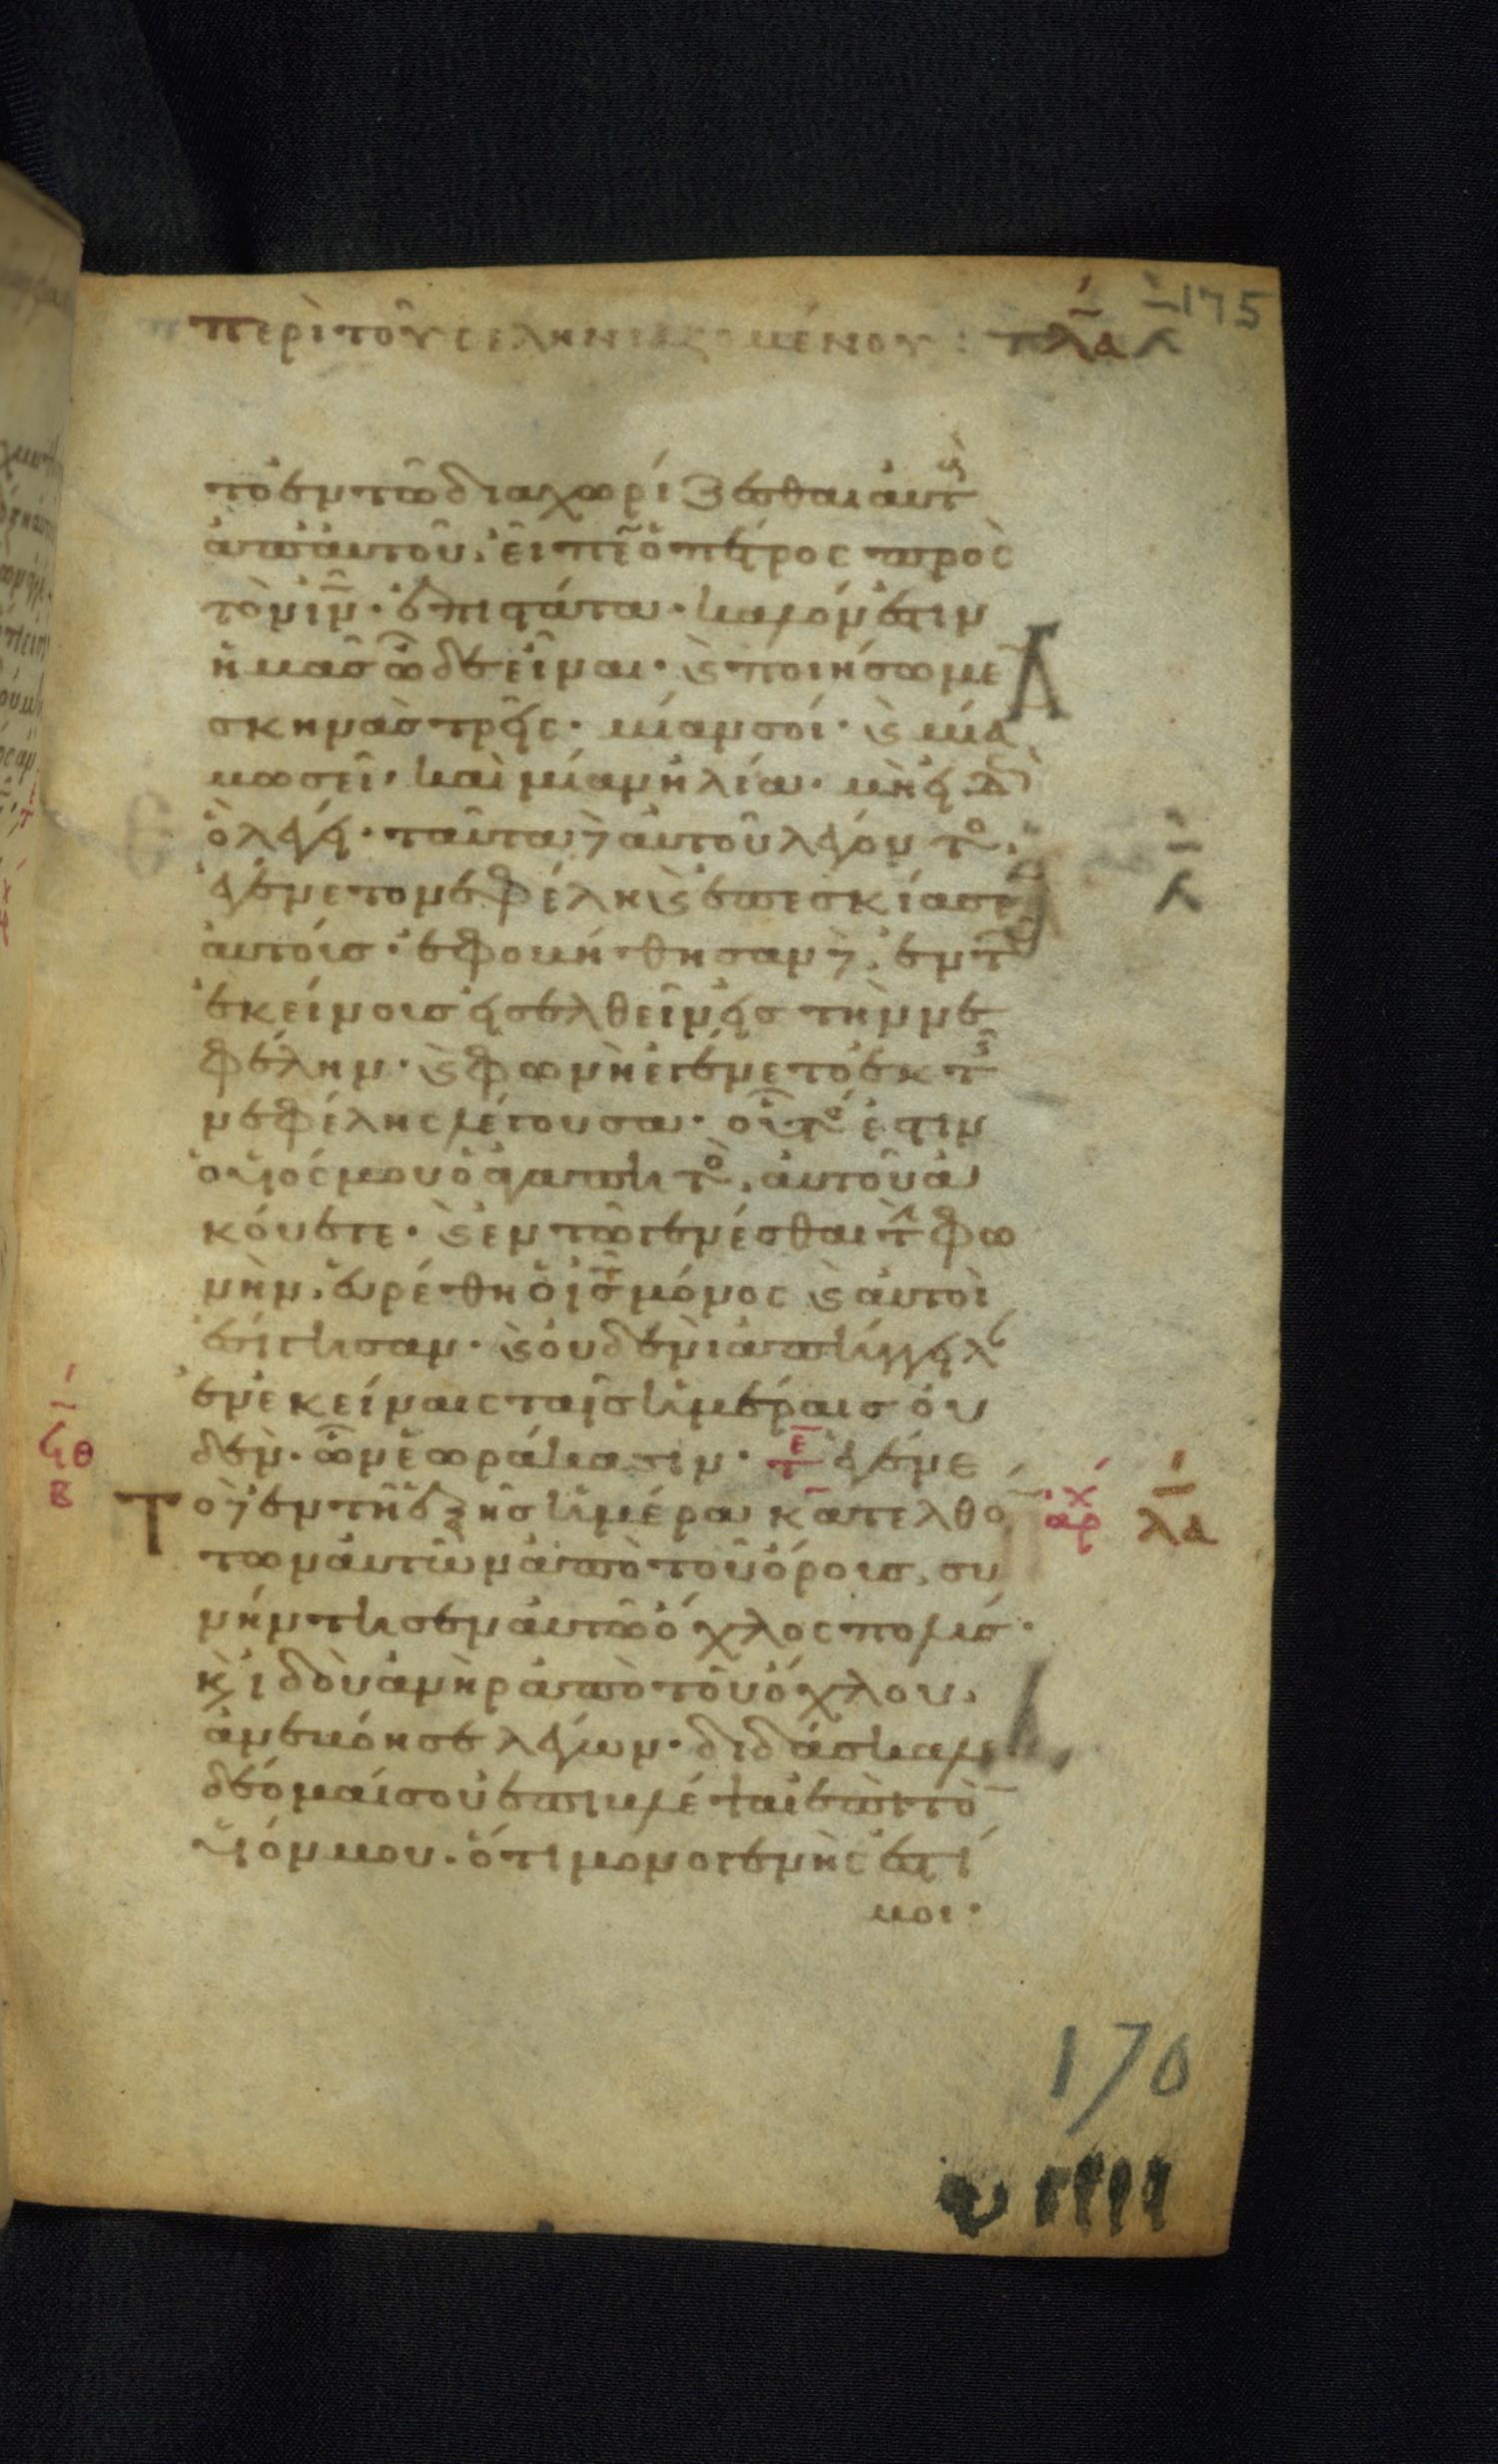 περὶ τοῦ σεληνιαζομένου : λα
175
το ἐν τῶ διαχωρίζεσθαι αὐτ
ἀπ αὐτοῦ. εἶπεν ὁ πέτρος πρὸς
τὸν ιν̅. ἐπιστάτα. καλόν ἐστιν
ἡμᾶς ὧδε εἶναι. ϗ ποιήσωμε
σκηνὰς τρεῖς. μίαν σοί. ϗ μία
μωσεῖ. καὶ μίαν ηλία. μὴ εἰδ
ὃ λέγει. ταῦτα δὲ αὐτοῦ λέγοντο
ἐγένετο νεφέλη ϗ ἐπεσκίασε
αὐτοίσ. ἐφοβήθησαν δὲ. ἐν τ
ἐκείνοισ εἰσελθεῖν εἰσ τὴν νε
φέλην. ϗ φωνὴ ἐγένετο ἐκ τ
νεφέλης λέγουσα. οὗτο ἐστιν
ὁ υἱός μου ὁ ἀγαπητο, αὐτοῦ ἀ
κούετε. ϗ ἐν τῶ γενέσθαι τ φω
νὴν. εὑρέθη ὁ ισ̅ μόνος ϗ αὐτοὶ
ἐσίγησαν. ϗ οὐδενὶ ἀπήγγειλ
ἐν ἐκείναις ταῖσ ἡμέραισ οὐ
δὲν. ὧν ἑωράκασιν. τε ἐγένε
το δὲ ἐν τῆ ἑξῆσ ἡμέρα κατελθο
των αὐτῶν ἀπὸ τοῦ ὄρουσ. συ
νήντησεν αὐτῶ ὄχλος πολύσ.
κ ἰδοὺ ἀνὴρ ἀπὸ τοῦ ὄχλου.
ἀνεβόησε λέγων. διδάσκαλε
δέομαί σου ἐπιβλέψαι ἐπὶ το
υἱόν μου. ὅτι μονογενὴς ἐστί
μοι.
λ
λα
170